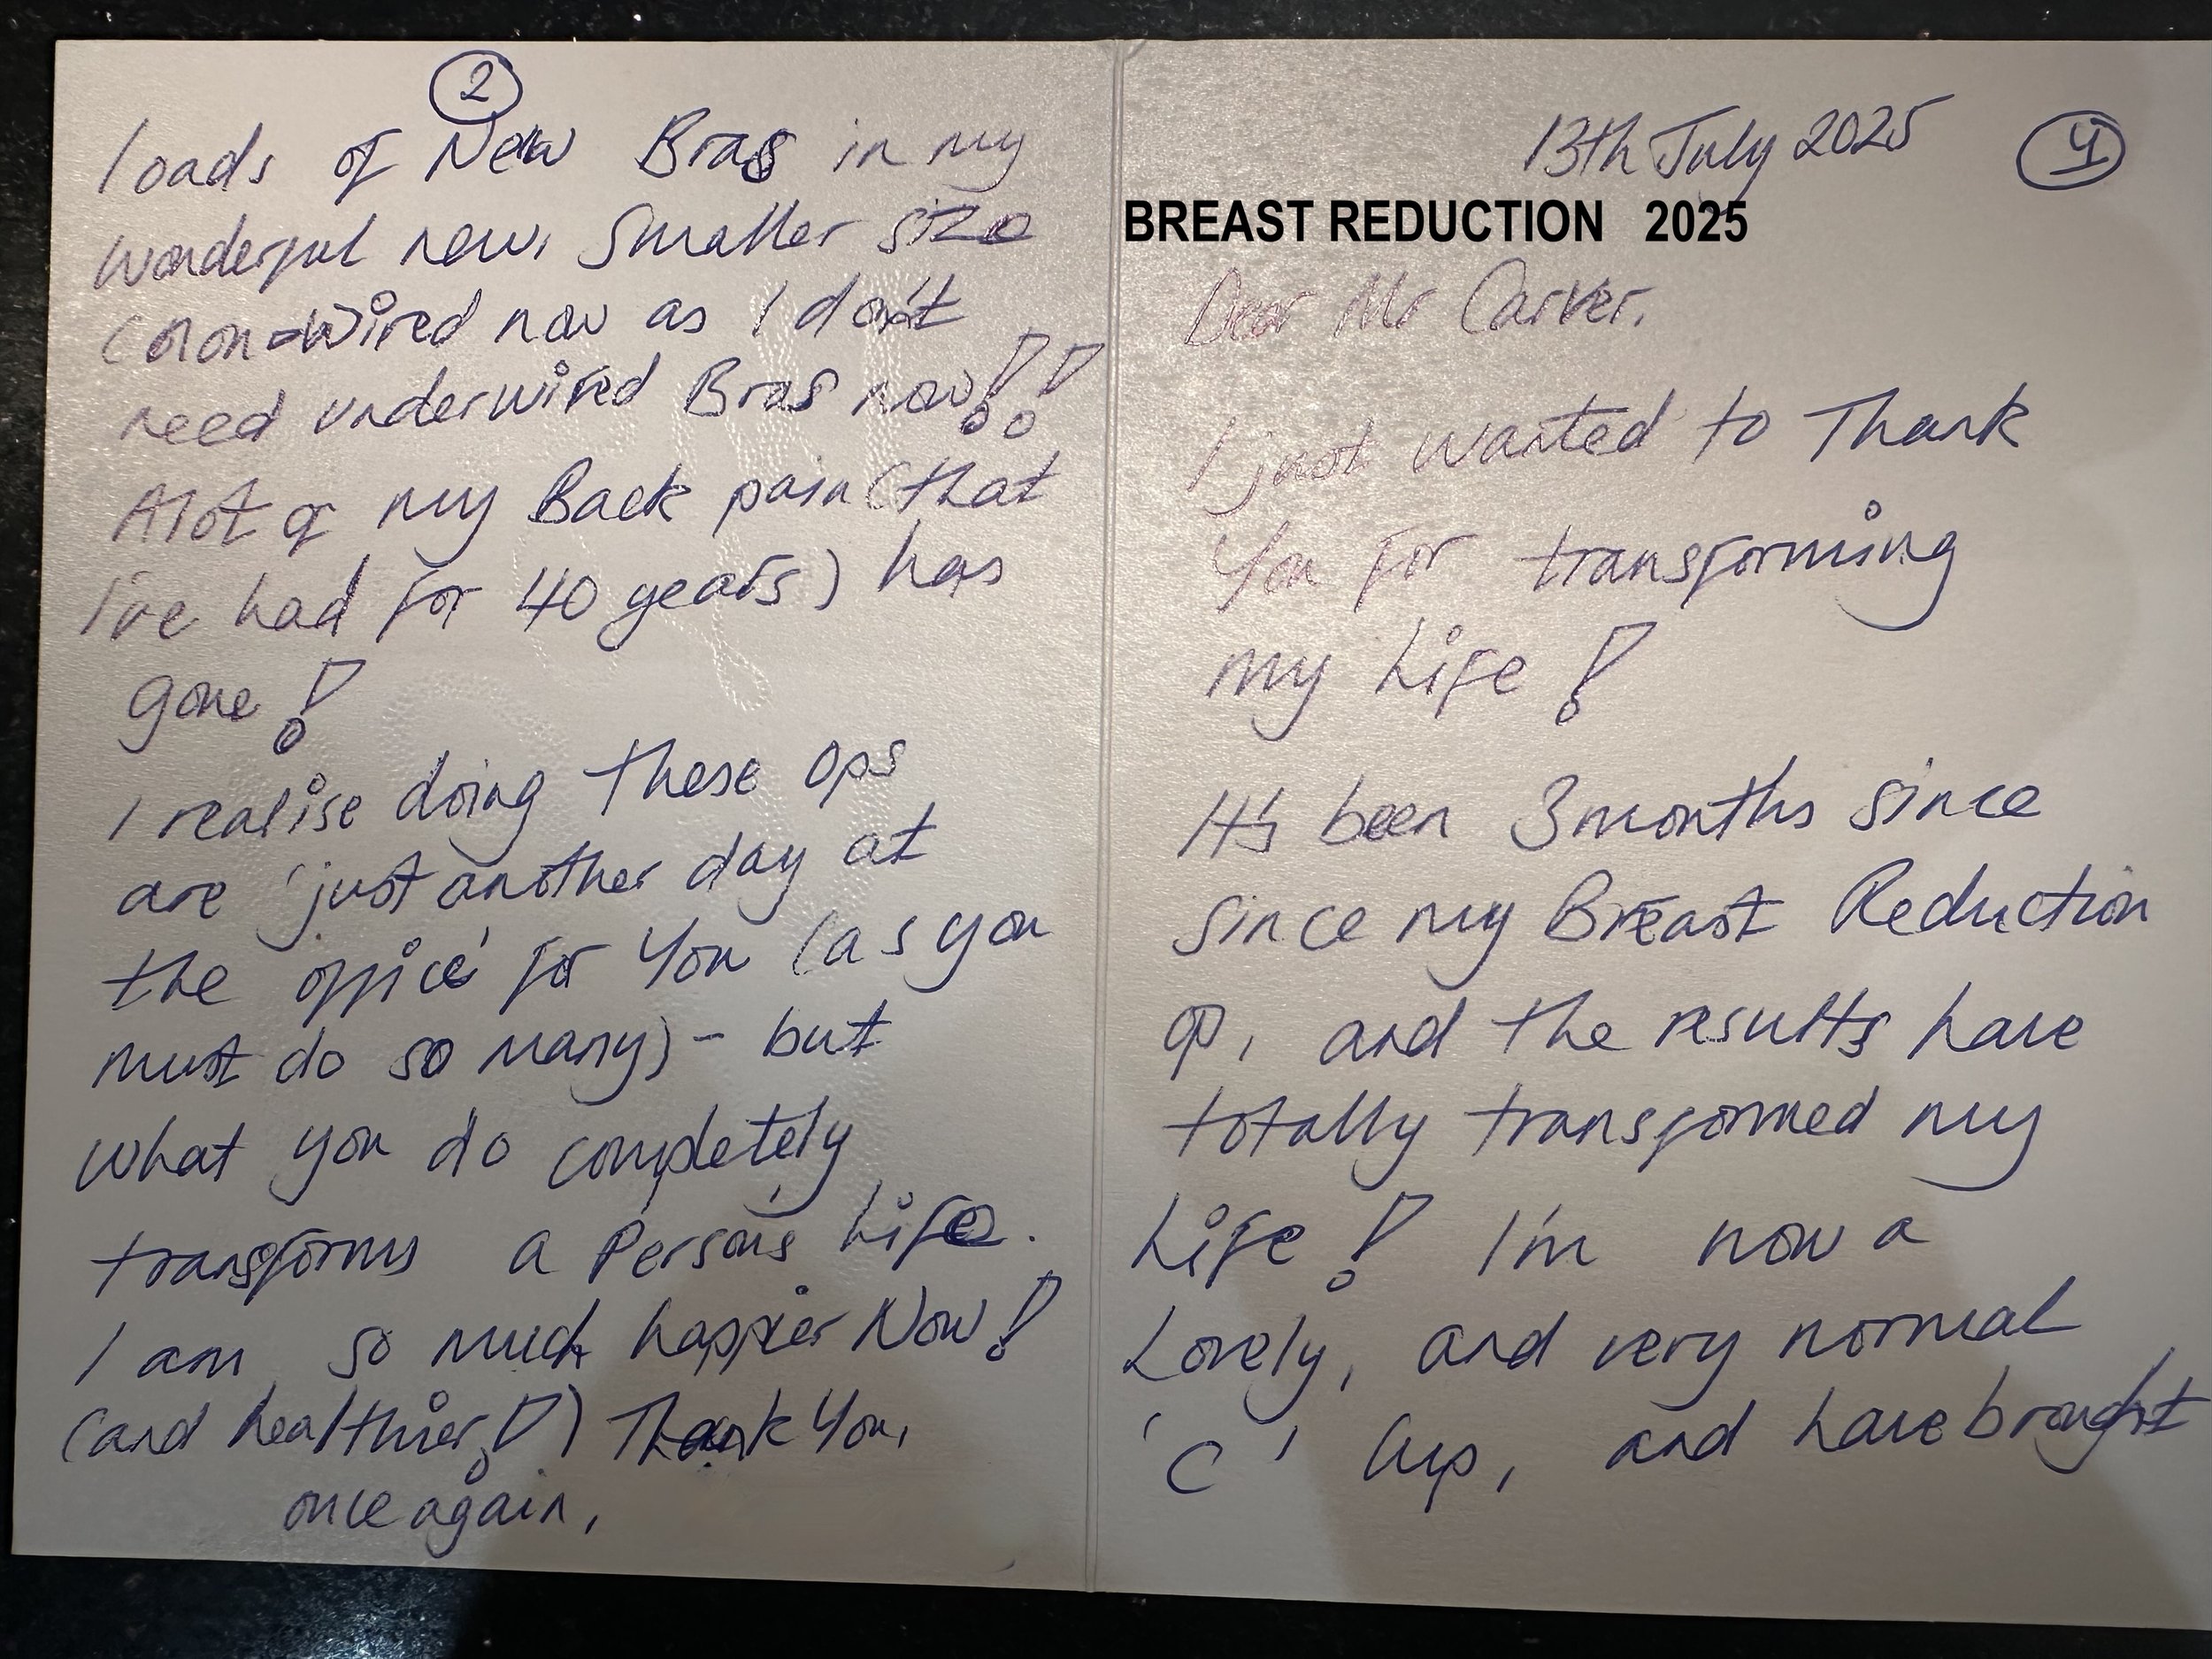 13th July 2025 1
BREAST REDUCTION 2025
Dear Mr Carver,
I just wanted to Thank
You for transforming
my Life!
It's been 3 months since
since my Breast Reduction
op, and the results have
totally transformed my
Life! I'm now a
Lovely, and very normal
'C' Cup, and have brought
2
loads of New Bras in my
wonderful new, Smaller size
(Non-wired now as I don't
need underwired Bras now!!
Alot of my Back pain (that
I've had for 40 years) has
gone!
I realise doing these ops
are 'just another day at
the office' for You (as you
must do so many) - but
what you do completely
transforms a Person's Life.
I am so much happier Now!
(and healthier!) Thank You,
once again,